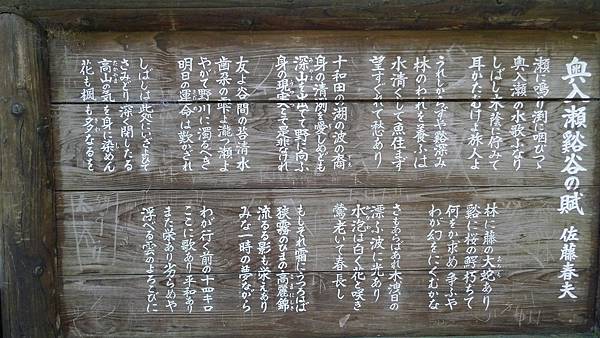 奥入瀬谿谷の賦
佐藤春夫
瀬に鳴り渕に咽びつゝ
奥入瀬の水歌ふなり
しばし木蔭に佇みて
耳かたむけよ旅人よ
うれしからずや谿深み
林のわれを養ふは
水清くして魚住まず
望すくなくて愁あり
十和田の湖の波の裔
身の清冽を愛しめども
深山を出でて野に向ふ
身の現実こそ是非なけれ
友よ谷間の苔清水
歯朶の雫よ滝つ瀬よ
やがて野川に濁るべき
明日の運命は歎かざれ
しばしは此処にいざよひて
さみどり深く閉したる
高山の気を身に染めん
花も楓も多なるを
林に藤の大蛇あり
谿に桜の鰐朽ちて
何をか求め争ふや
わが幻をにくむかな
さもあらばあれ木洩日の
漂ふ波に光あり
水泡は白く花と咲き
鶯老いて春長し
もしそれ霜にうつろはば
狭霧のひまの高麗錦
流るる影も栄えあり
みな一時の夢ながら
わが行く前の十四キロ
ここに歌あり平和あり
また栄あり劣らめや
浮べる雲のよろこびに